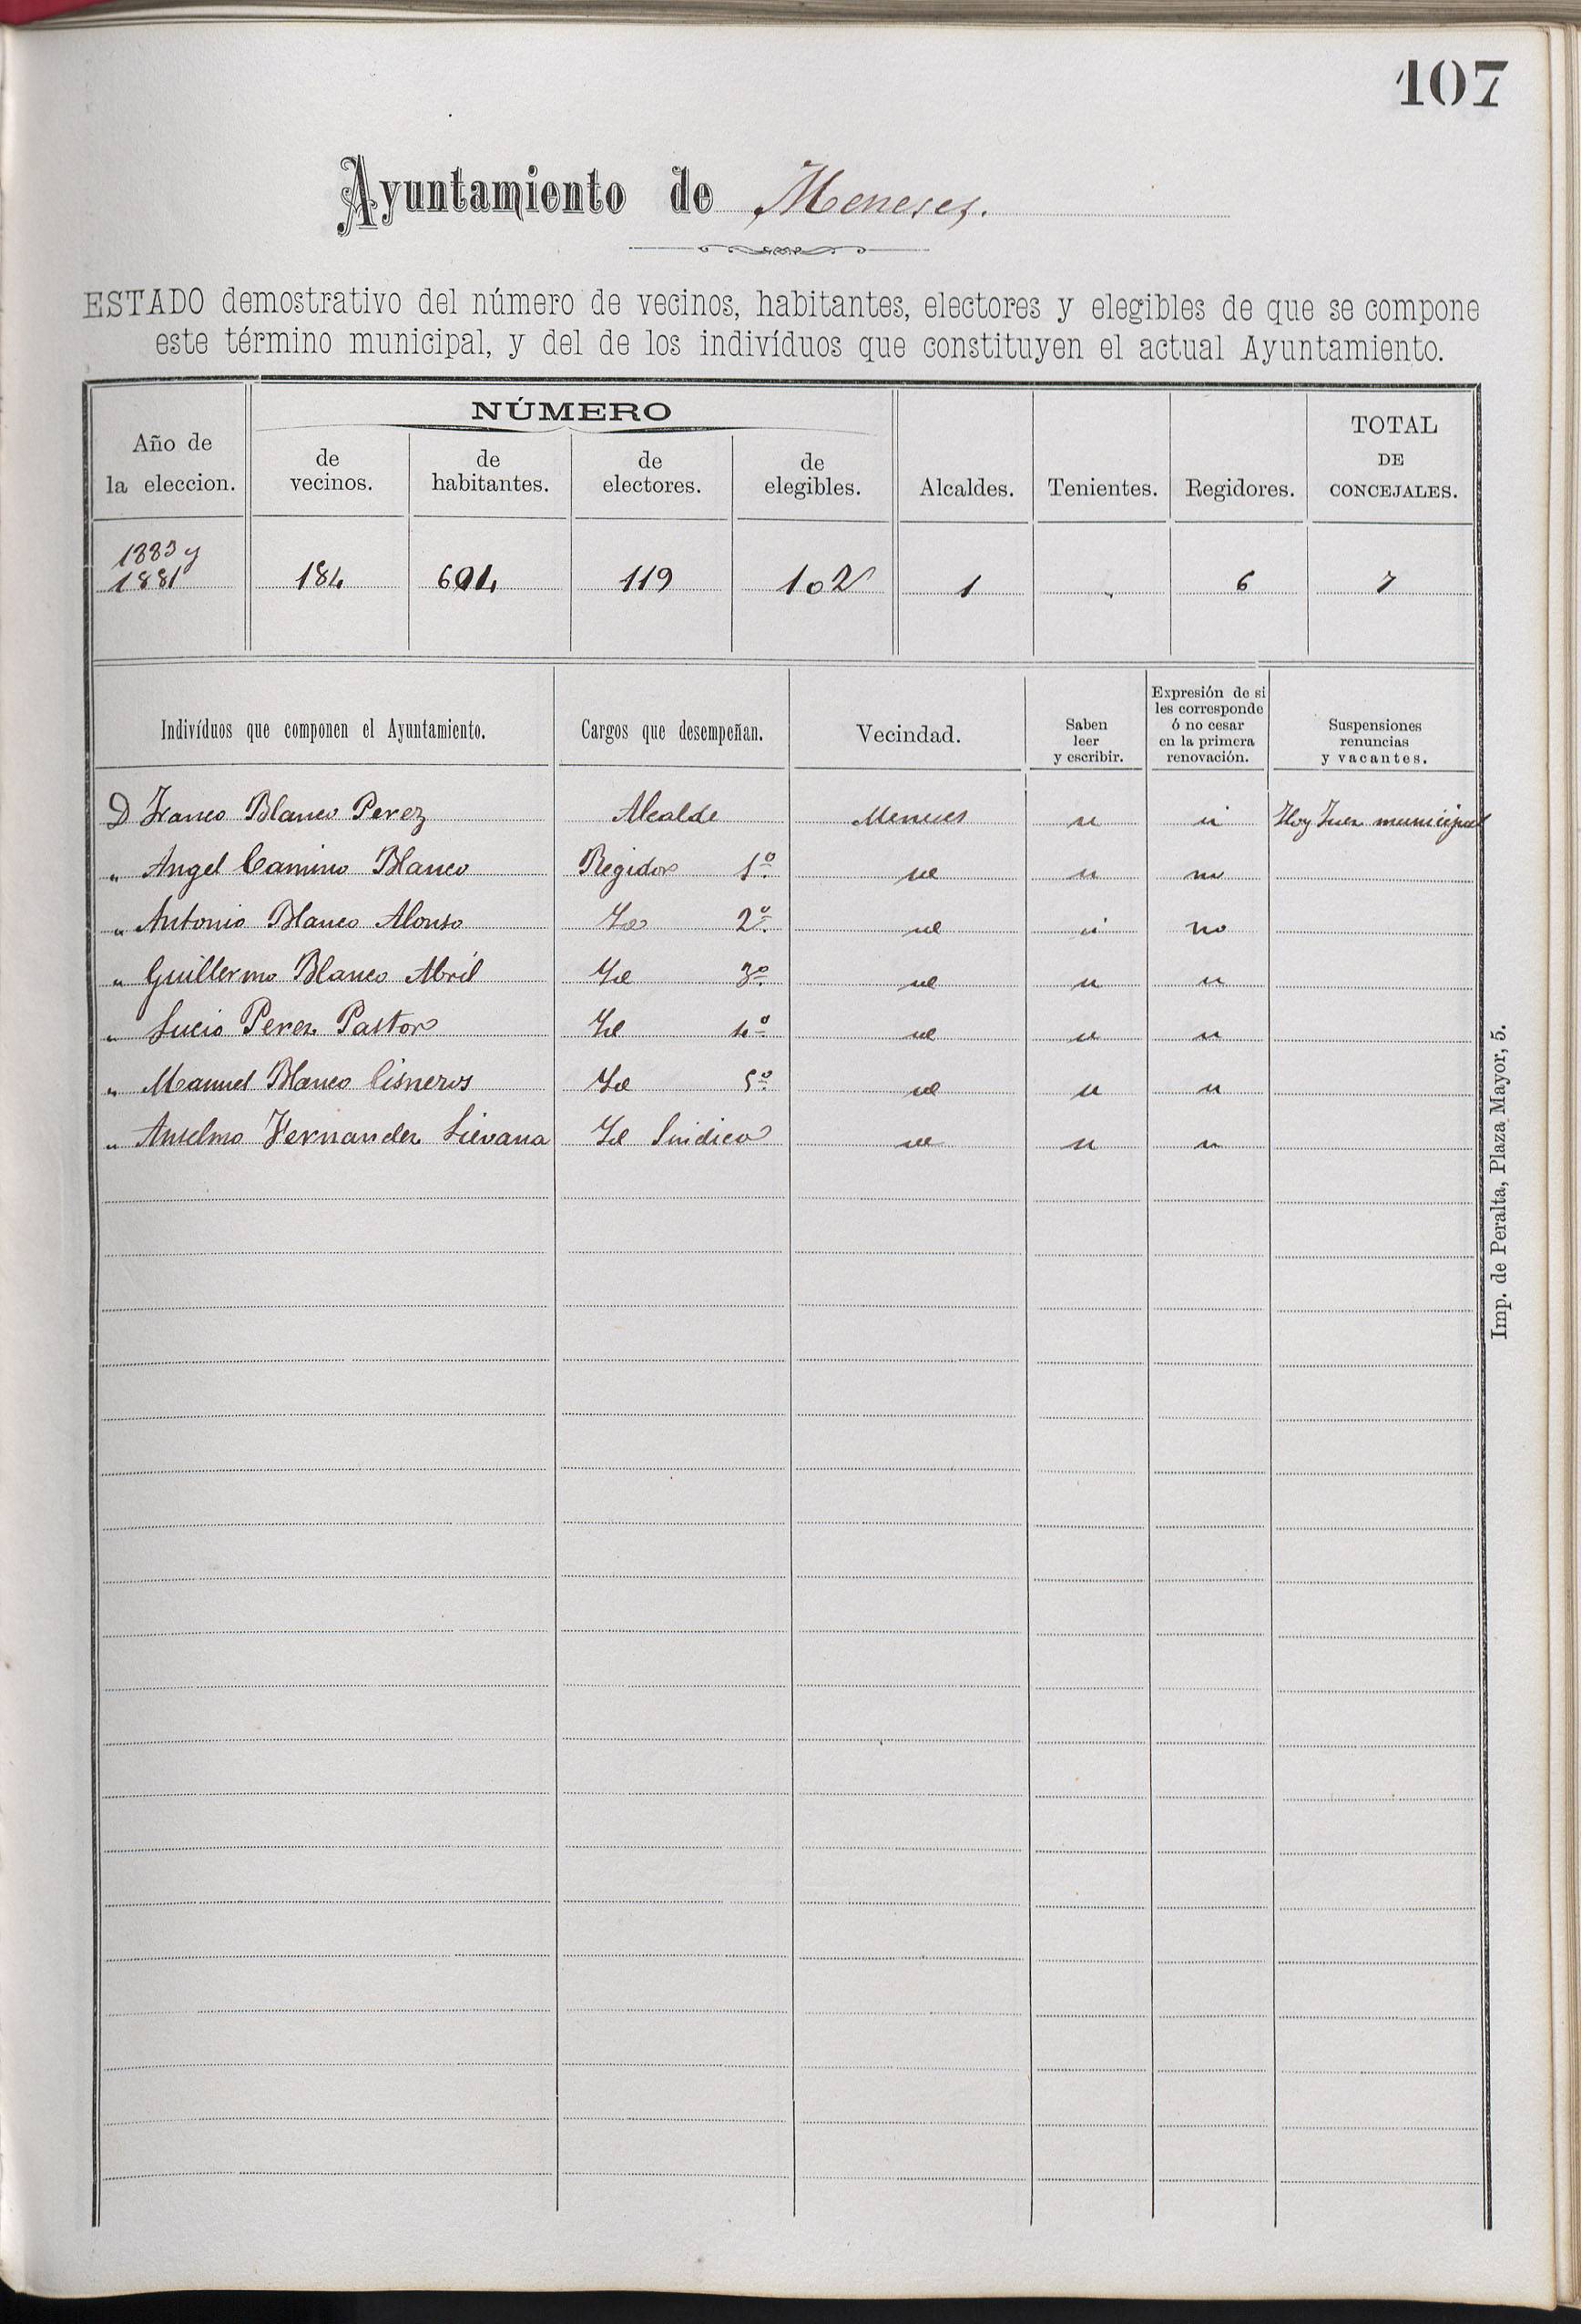 107
Ayuntamiento de Meneses.
ESTADO demostrativo del número de vecinos, habitantes, electores y elegibles de que se compone
este término municipal, y del de los indivíduos que constituyen el actual Ayuntamiento.
Año de la eleccion. NÚMERO de vecinos. de habitantes. de electores. de elegibles. Alcaldes. Tenientes. Regidores. TOTAL DE CONCEJALES.
1883 y
1881 184 119 102 1 6 7
Indivíduos que componen el Ayuntamiento. Cargos que desempeñan. Vecindad. Saben leer y escribir. Expresión de si les corresponde ó no cesar en la primera renovación. Suspensiones renuncias y vacantes.
D Franco Blanco Perez Alcalde Meneses si si Hoy Juez municipal
" Angel Camino Blanco Regidor 1º id si no
" Antonio Blanco Alonso Id 2º id si no
" Guillermo Blanco Abril Id 3º id si si
" Lucio Perez Pastor Id 4º id si si
" Manuel Blanco Cisneros Id 5º id si si
" Anselmo Fernandez Lievana Id Sindico id si si
Imp. de Peralta, Plaza Mayor, 5.